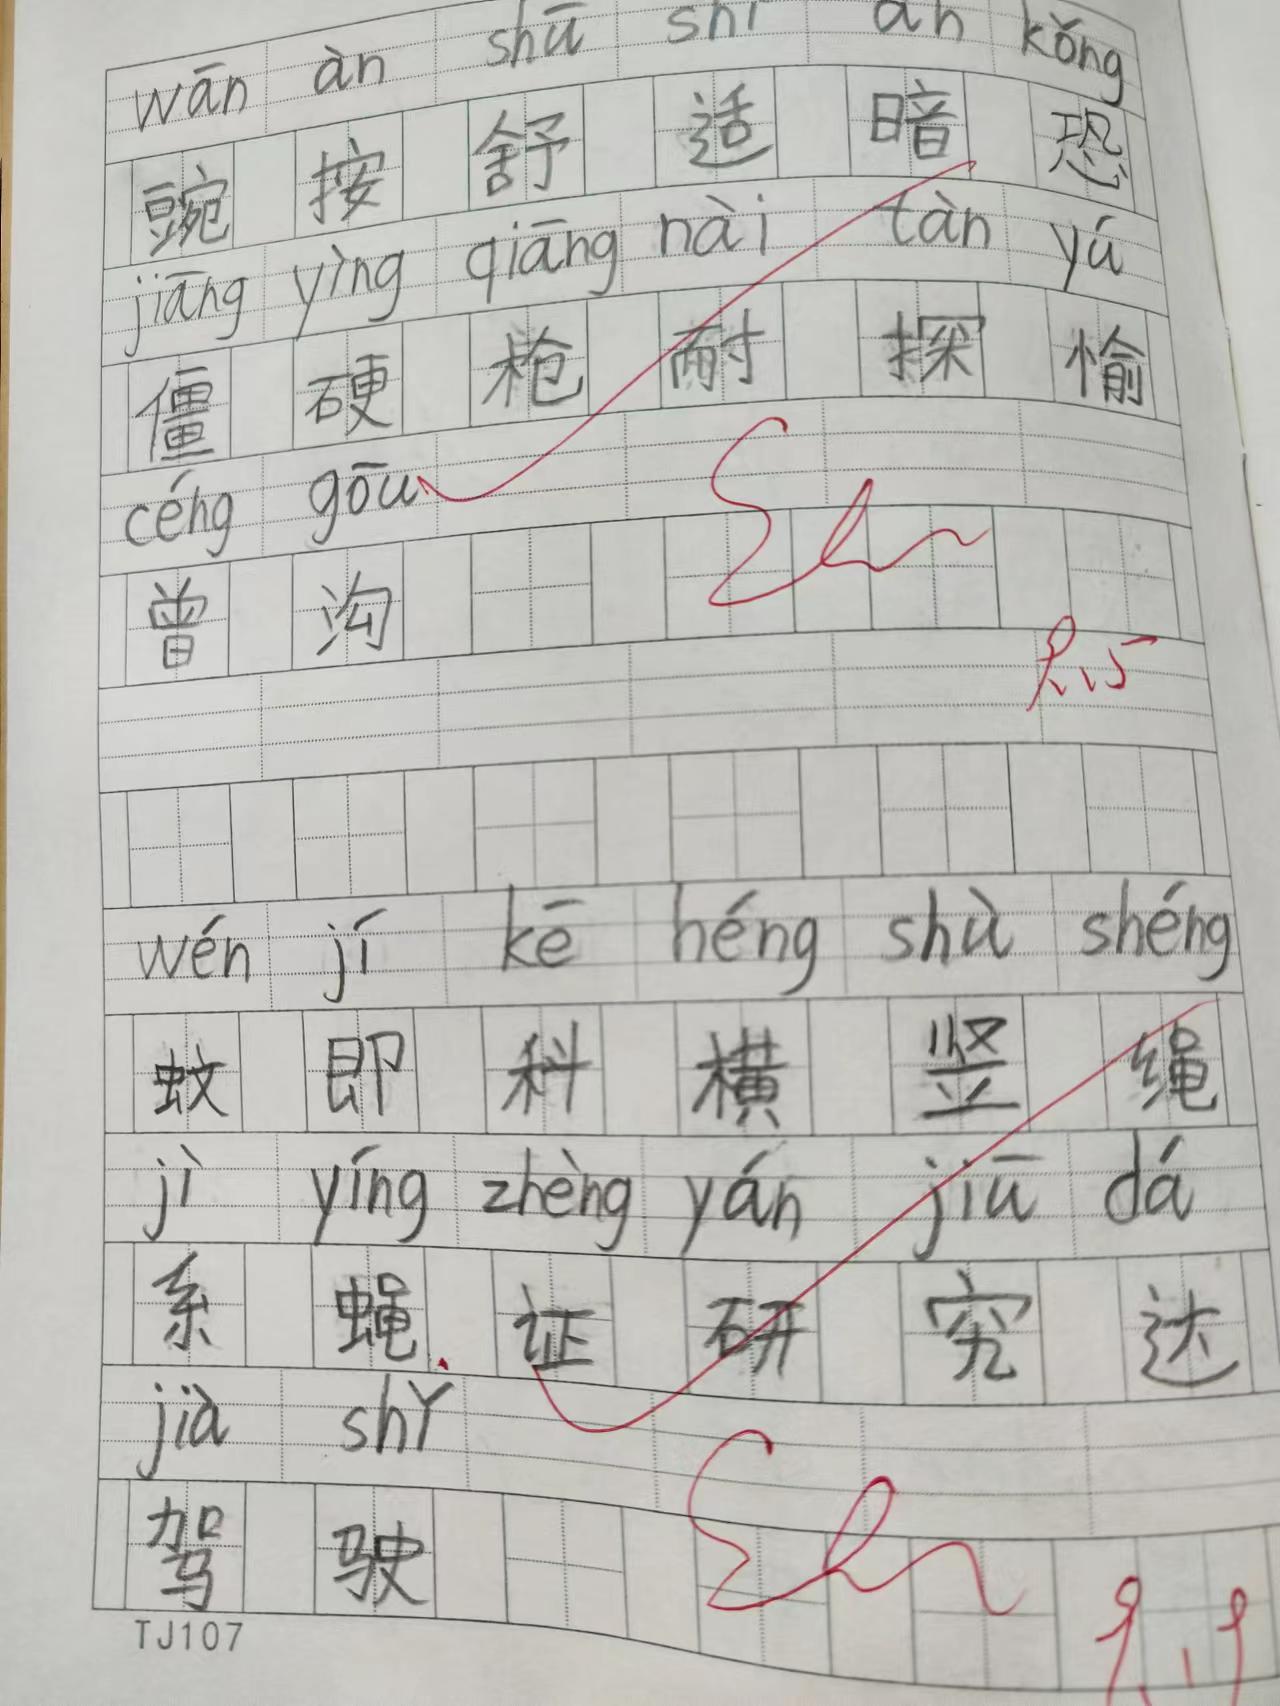 wān àn shū shì àn kǒng
豌 按 舒 适 暗 恐
jiāng yìng qiāng nài tàn yú
僵 硬 枪 耐 探 愉
céng gōu
曾 沟
wén jí kē héng shù shéng
蚊 即 科 横 竖 绳
jì yíng zhèng yán jiū dá
系 蝇 证 研 究 达
jià shǐ
驾 驶
TJ107